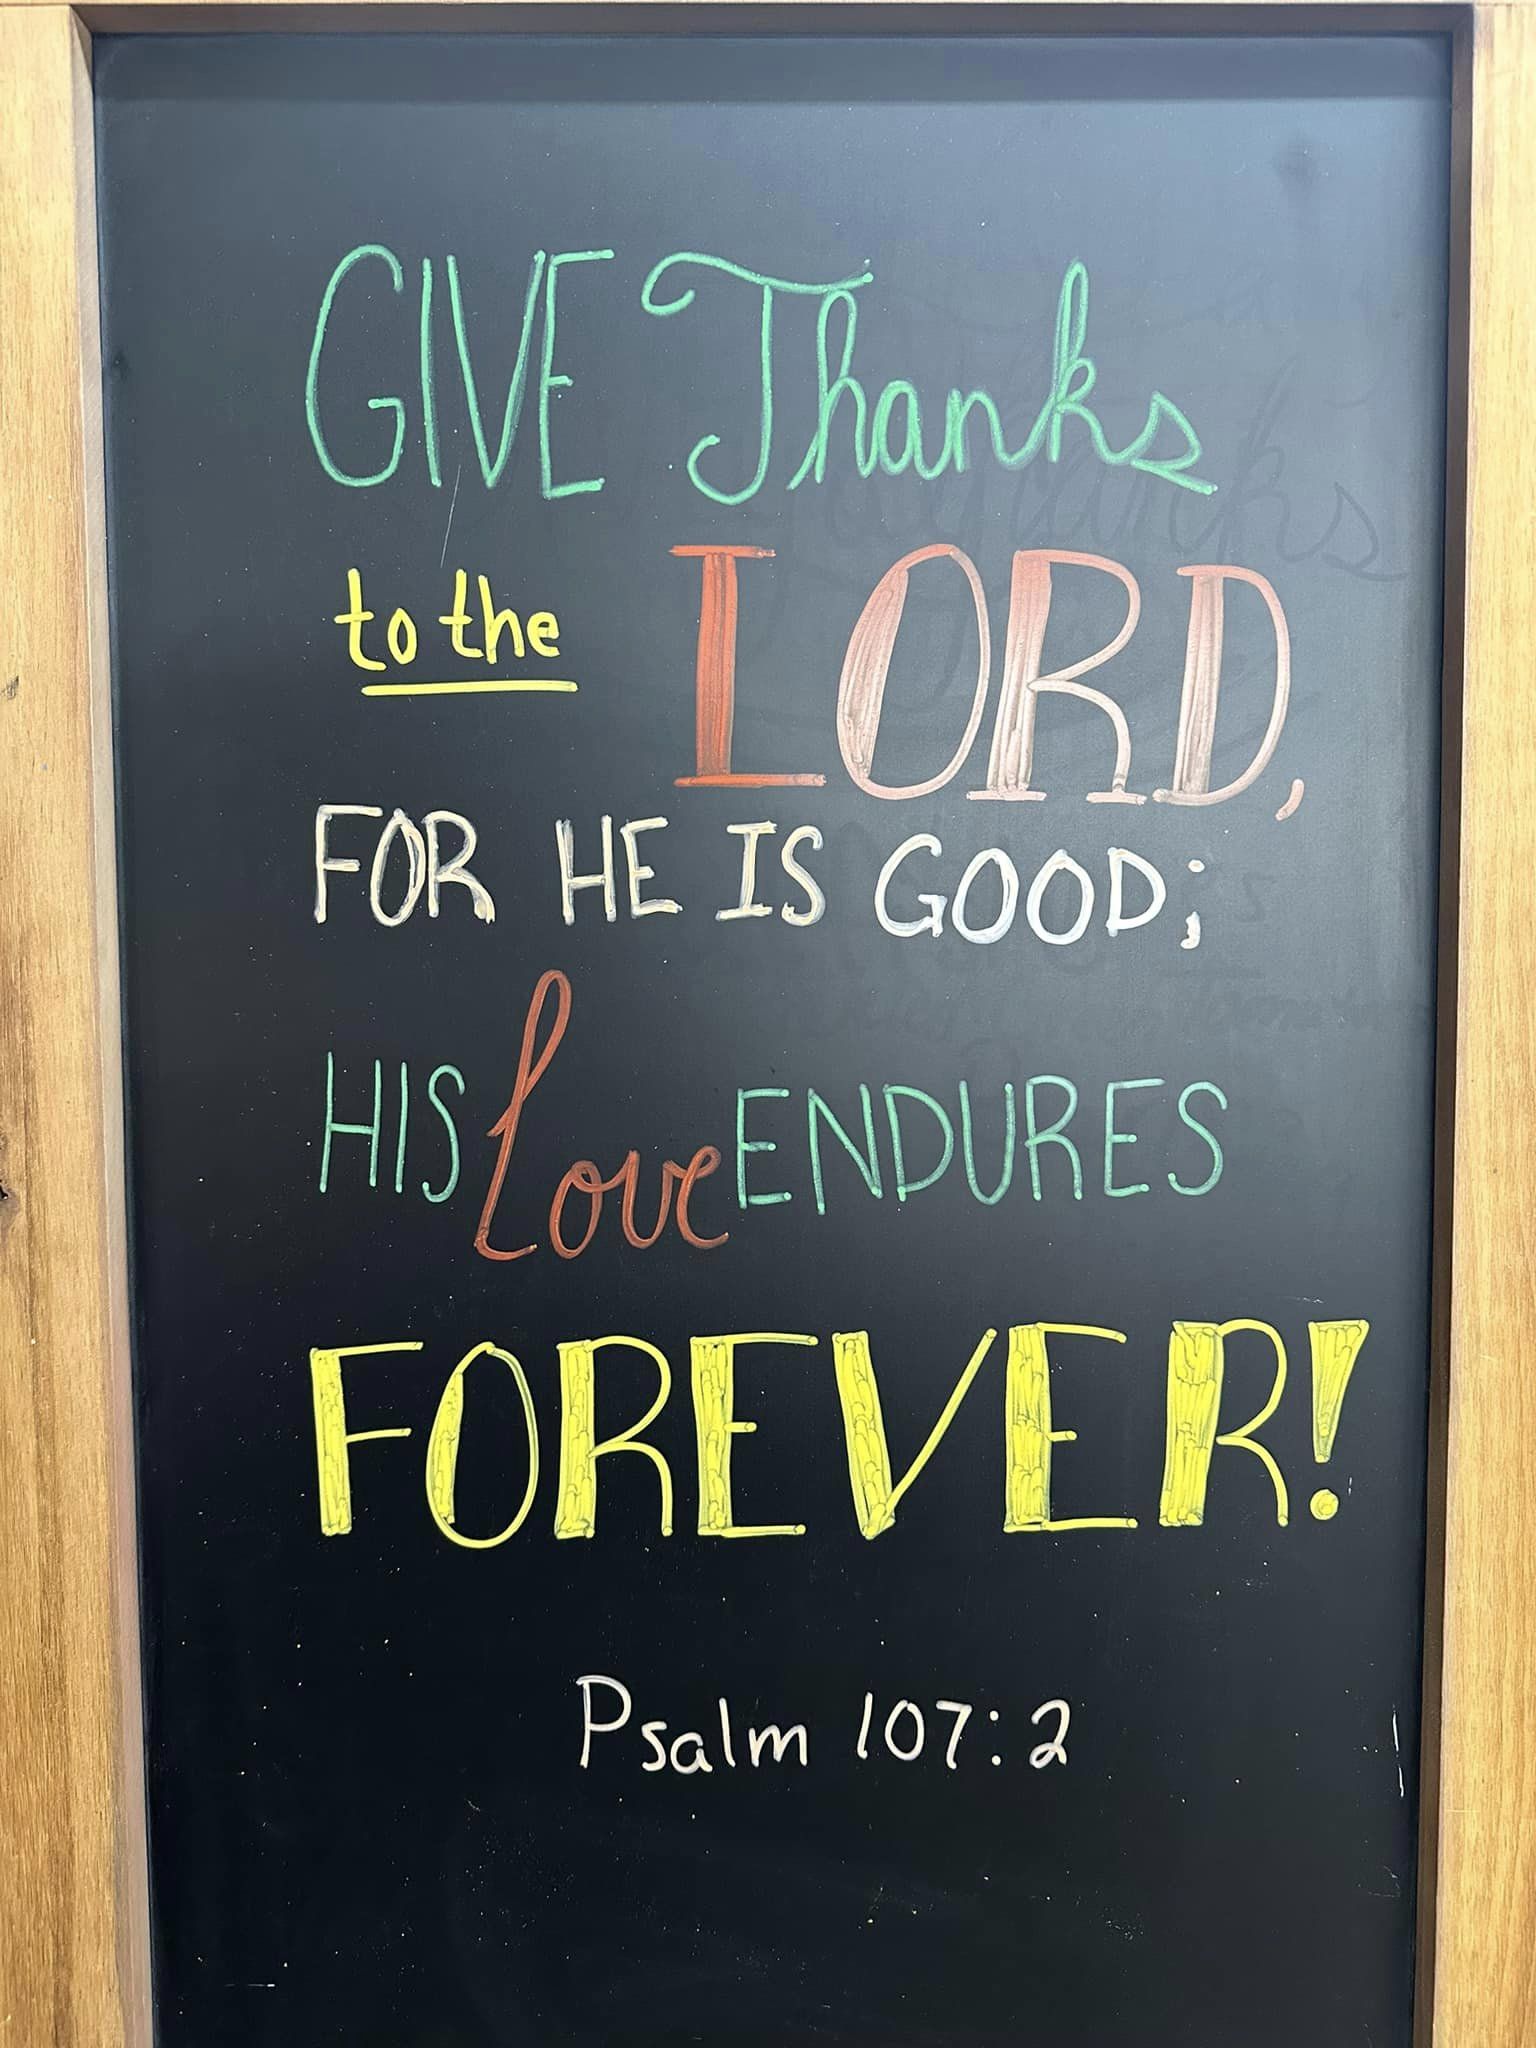 GIVE Thanks
to the LORD,
FOR HE IS GOOD;
HIS Love ENDURES
FOREVER!
Psalm 107:2